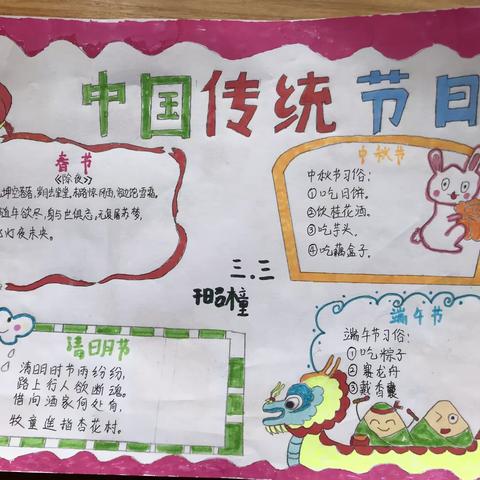 中国传统节日
春节
《除夜》
坤空落落，岁月去堂堂，末路惊风雨，穷边饱雪霜。
随年欲尽，身与世俱忘，无复屠苏梦，
灯夜未央。
中秋节
中秋节习俗：
①吃月饼。
②饮桂花酒。
③吃芋头。
④吃藕盒子。
三.三
清明节
清明时节雨纷纷，
路上行人欲断魂。
借问酒家何处有，
牧童遥指杏花村。
端午节
端午节习俗：
①吃粽子
②赛龙舟
③戴香囊